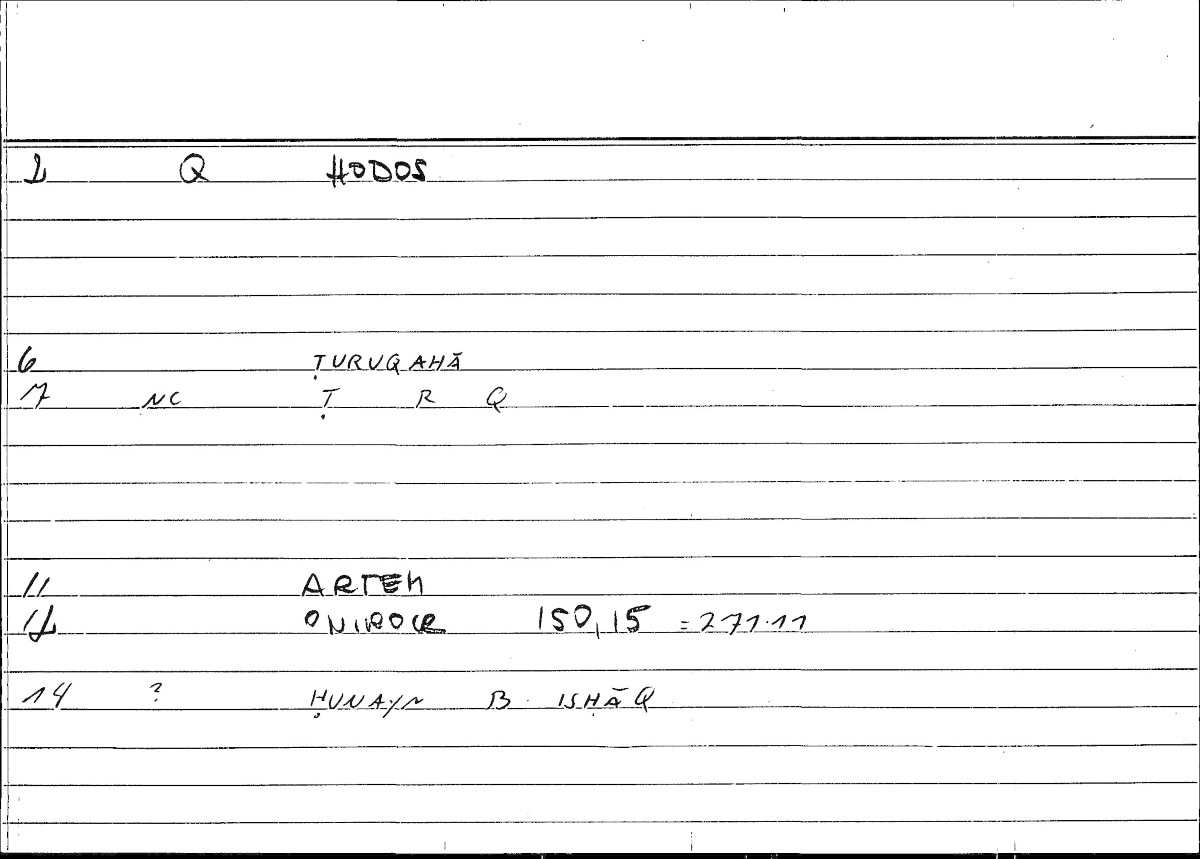 2 Q HODOS
6 ṬURUQAHĀ
7 NC Ṭ R Q
11 ARTEM
12 ONIROCR 150,15 = 271.11
14 ? ḤUNAYN B. ISḤĀQ